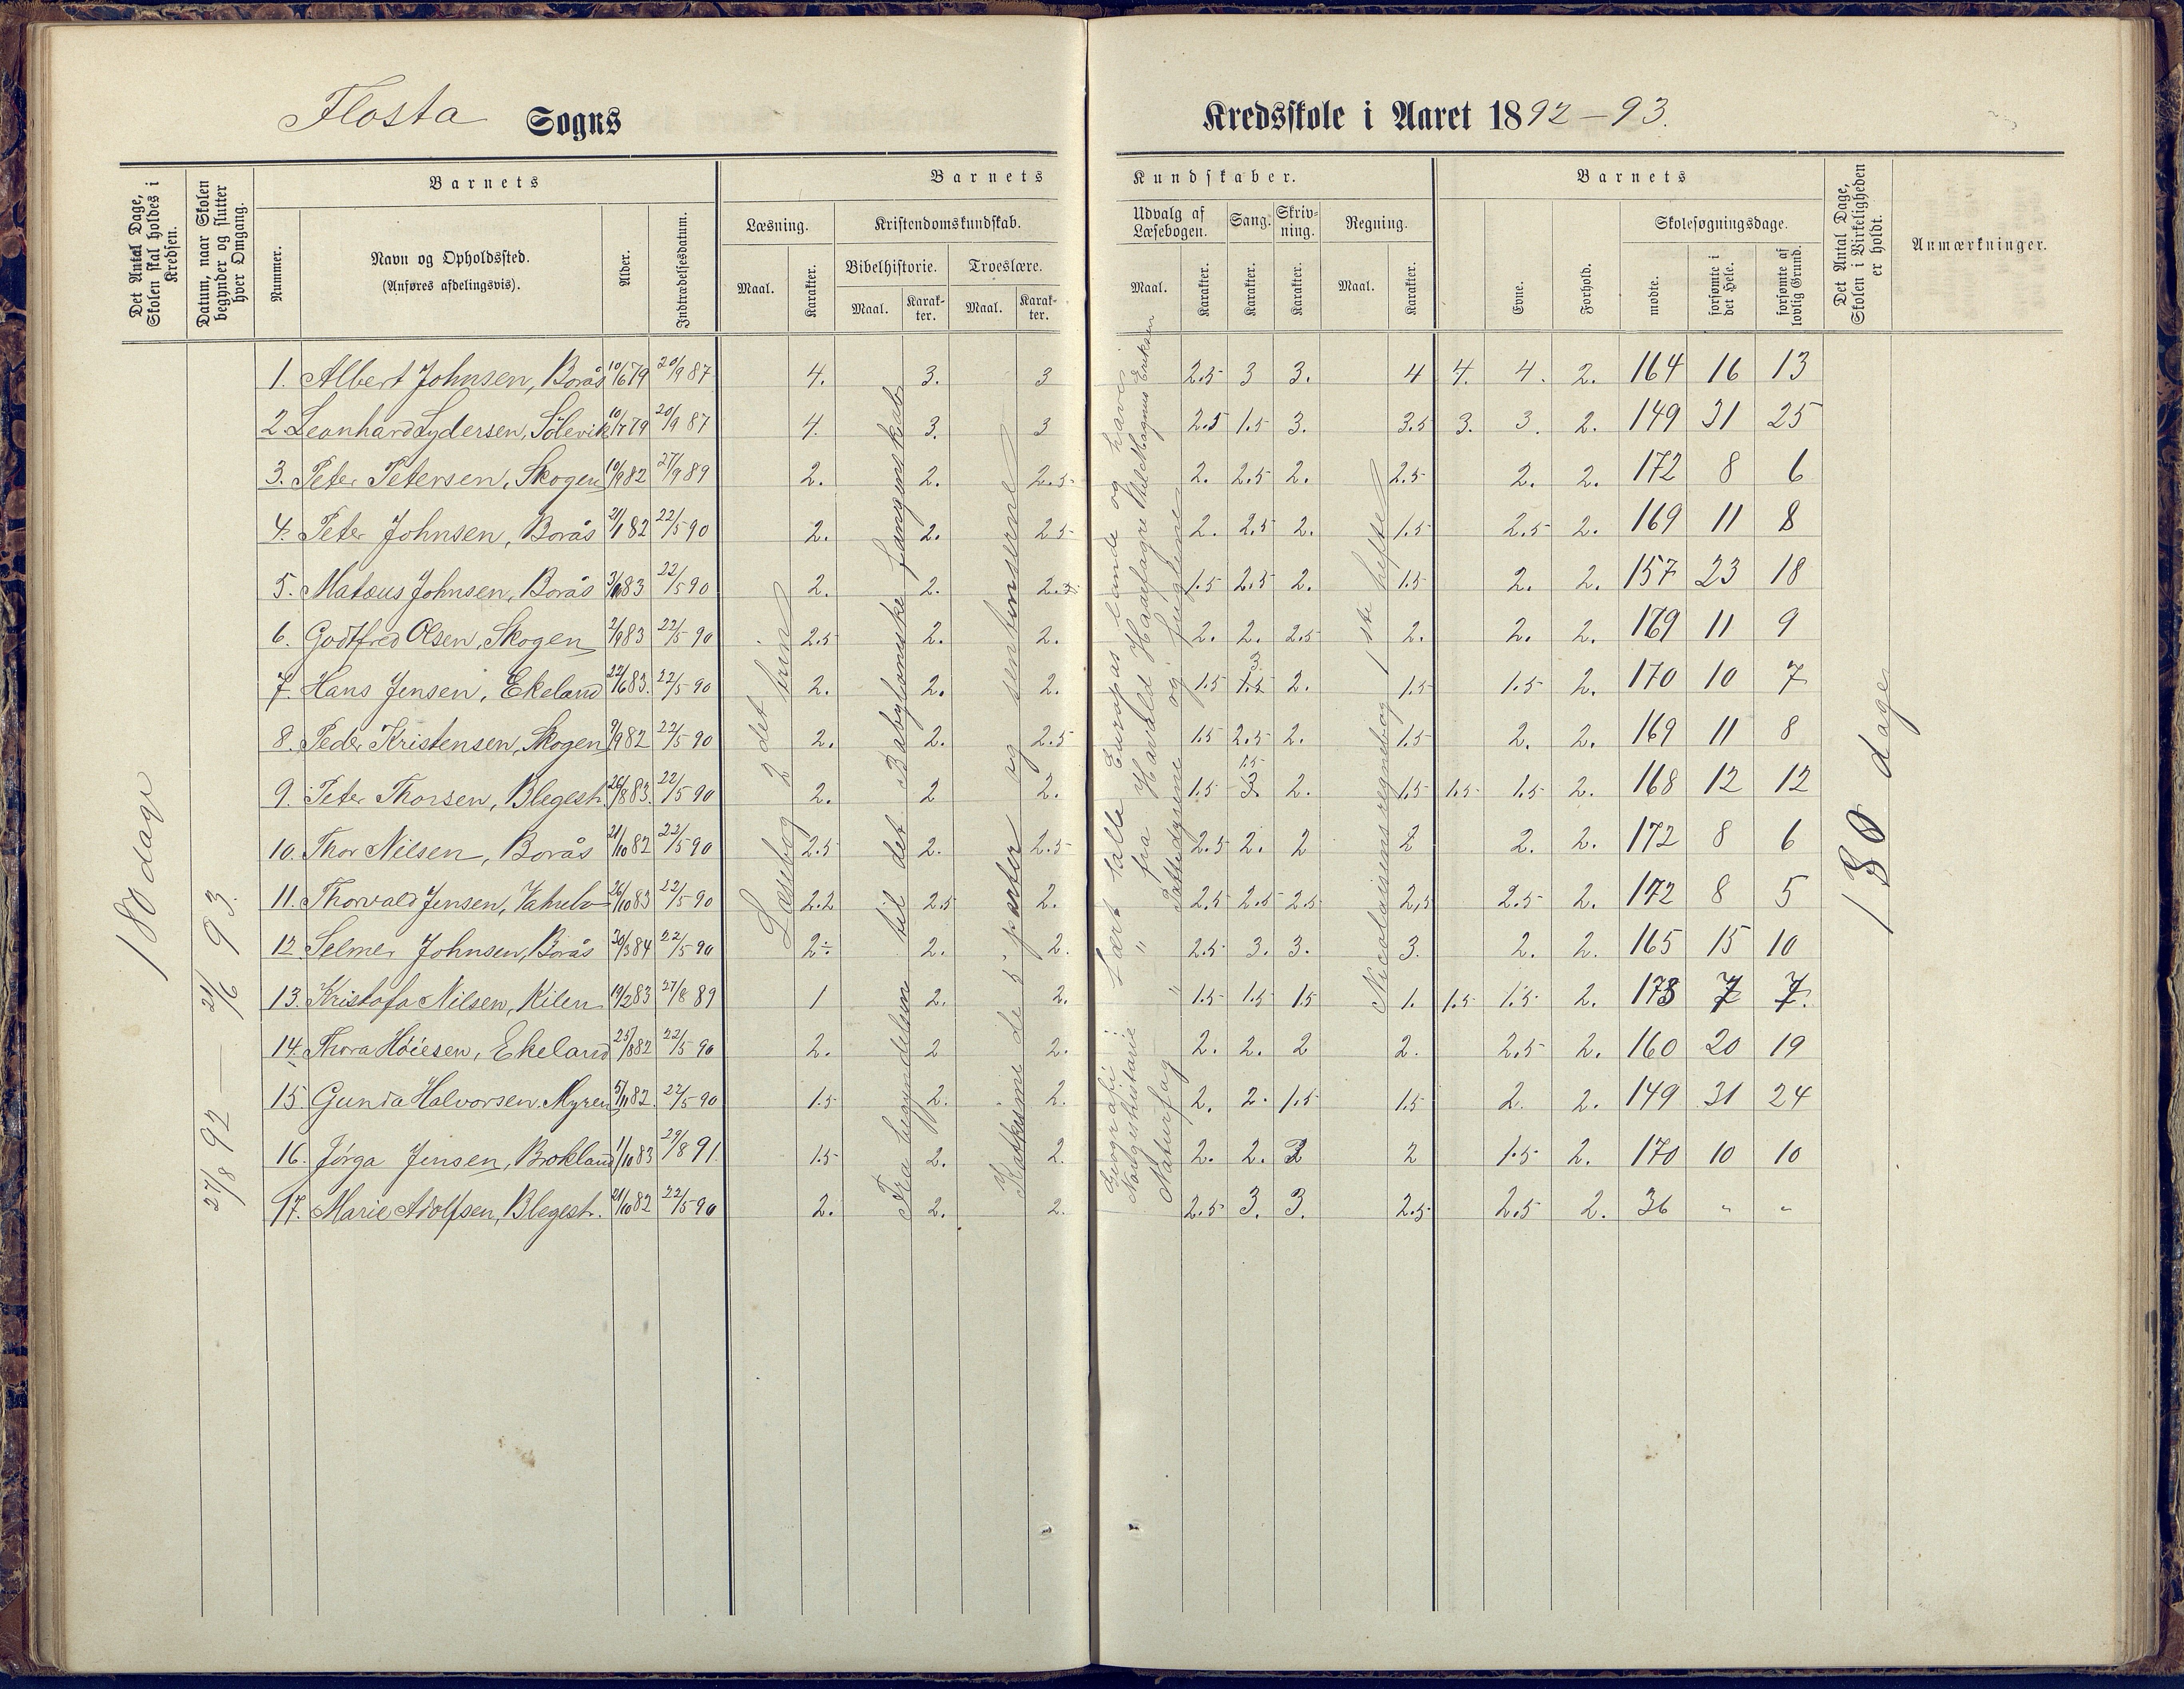 Flosta Sogns
Kredsskole i Aaret 1892-93.
Det Antal Dage, Skolen skal holdes i Kredsen.
Datum, naar Skolen begynder og slutter hver Omgang.
Barnets
Nummer.
Navn og Opholdssted.
(Anføres afdelingsvis).
Alder.
Indtrædelsesdatum.
Barnets
Læsning.
Maal.
Karakter.
Kristendomskundskab.
Bibelhistorie.
Maal.
Karakter.
Troeslære.
Maal.
Karakter.
Kundskaber.
Udvalg af Læsebogen.
Maal.
Karakter.
Sang.
Karakter.
Skrivning.
Karakter.
Regning.
Maal.
Karakter.
Barnets
Evne.
Forhold.
Skolesøgningsdage.
mødte.
forsømte i det Hele.
forsømte af lovlig Grund.
Det Antal Dage, Skolen i Virkeligheden er holdt.
Anmærkninger.
180 dage
27/8 92 — 21/6 93.
1. Albert Johnsen, Borås 10/6 79 20/9 87 4. 3. 3 2.5 3 3. 4 4. 4. 2. 164 16 13
2. Leonhard Lydersen, Sølevik 10/7 79 20/9 87 4. 3. 3 2.5 1.5 3. 3.5 3. 3. 2. 149 31 25
3. Peter Petersen, Skogen 10/9 82 27/9 89 2. 2. 2.5 2. 2.5 2. 2.5 2. 2. 172 8 6
4. Peter Johnsen, Borås 21/1 82 22/5 90 2. 2. 2.5 2. 2.5 2. 1.5 2.5 2. 169 11 8
5. Matæus Johnsen, Borås 83 22/5 90 2. 2. 2.5 1.5 2.5 2. 1.5 2. 2. 157 23 18
6. Godtfred Olsen, Skogen 2/9 83 22/5 90 2.5 2. 2. 2. 2. 2.5 2. 2. 2. 169 11 9
7. Hans Jensen, Ekeland 22/6 83. 22/5 90 2. 2. 2. 1.5 3 2. 1.5 1.5 2. 170 10 7
8. Peder Kristensen, Skogen 9/9 82 22/5 90 2. 2. 2.5 1.5 2.5 2. 1.5 2. 2. 169 11 8
9. Peter Thorsen, Blegest. 26/8 83. 22/5 90 2. 2 2. 1.5 1.5 2. 1.5 1.5 1.5 2. 168 12 12
10. Thor Nilsen, Borås 21/10 82 22/5 90 2.5 2. 2.5 2.5 2. 2 2 2. 2. 172 8 6
11. Thorvald Jensen, 26/10 83 22/5 90 2.2 2.5 2. 2.5 2.5 2.5 2,5 2.5 2. 172 8 5
12 Selmer Johnsen, Borås 30/3 84 22/5 90 2÷ 2. 2. 2.5 3. 3. 3. 2. 2. 165 15 10
13. Kristofa Nilsen, Kilen 19/2 83 27/8 89 1 2. 2. 1.5 1.5 1.5 1. 1.5 1.5 2. 173 7 7.
14. Thora Høiesen, Ekeland 25/8 82 22/5 90 2. 2 2. 2. 2. 2 2. 2.5 2. 160 20 19
15. Gunda Halvorsen, Myren 5/11 82. 22/5 90 1.5 2. 2. 2. 2. 1.5 1.5 2. 2. 149 31 24
16. Jørga Jensen, Brokland 1/10 83 29/8 91. 1.5 2. 2. 2. 2. 2 2 1.5 2. 170 10 10
17. Marie Adolfsen, Blegest. 21/10 82 22/5 90 2. 2. 2. 2.5 3. 3. 2.5 2.5 2. 36 " "
Læsebog 2det trin
Fra begyndelsen til det Babyloniske fangenskab
Katkisme de 5 parter og
Geografi: Lært talle Europas lande og have.
Norgeshistorie " fra Harald Haarfagre til Magnus Eriksen
Naturfag " Pattedyrene og fuglene
Nicolaisens regnebog 1ste hefte
180 dage